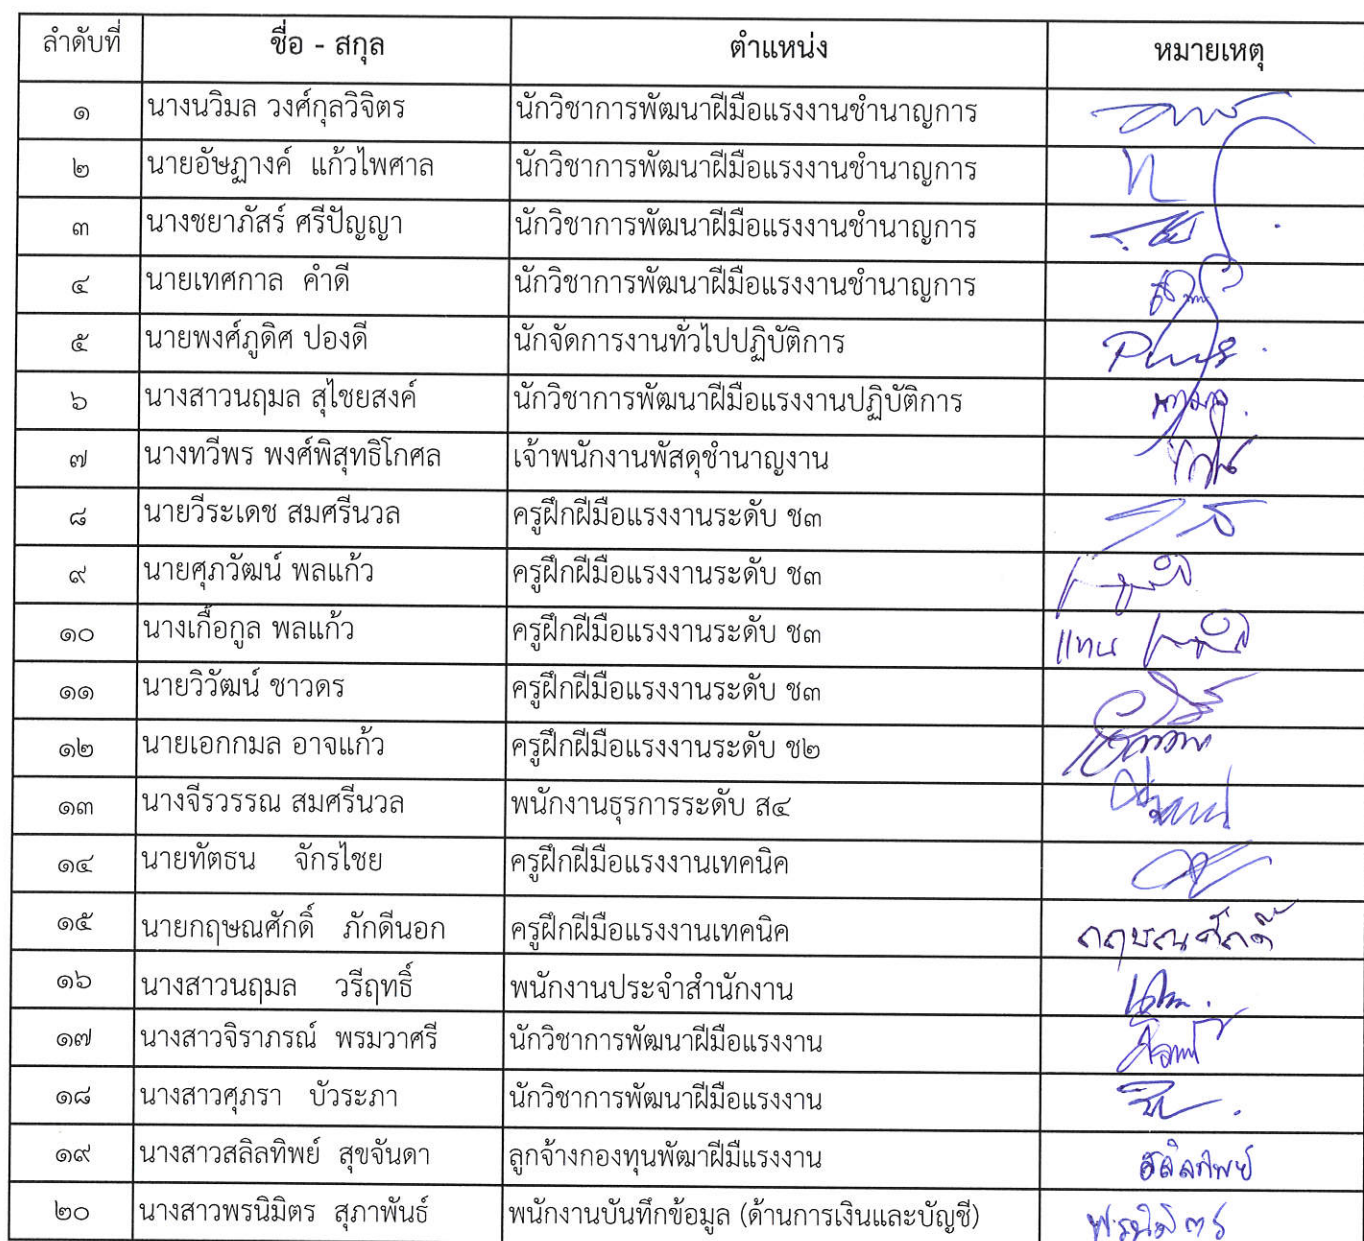 ลำดับที่ ชื่อ - สกุล ตำแหน่ง หมายเหตุ
๑ นางนวิมล วงศ์กุลวิจิตร นักวิชาการพัฒนาฝีมือแรงงานชำนาญการ
๒ นายอัษฎางค์ แก้วไพศาล นักวิชาการพัฒนาฝีมือแรงงานชำนาญการ
๓ นางชยาภัสร์ ศรีปัญญา นักวิชาการพัฒนาฝีมือแรงงานชำนาญการ
๔ นายเทศกาล คำดี นักวิชาการพัฒนาฝีมือแรงงานชำนาญการ
๕ นายพงศ์ภูดิศ ปองดี นักจัดการงานทั่วไปปฏิบัติการ
๖ นางสาวนฤมล สุไชยสงค์ นักวิชาการพัฒนาฝีมือแรงงานปฏิบัติการ นฤมล
๗ นางทวีพร พงศ์พิสุทธิโกศล เจ้าพนักงานพัสดุชำนาญงาน
๘ นายวีระเดช สมศรีนวล ครูฝึกฝีมือแรงงานระดับ ช๓
๙ นายศุภวัฒน์ พลแก้ว ครูฝึกฝีมือแรงงานระดับ ช๓
๑๐ นางเกื้อกูล พลแก้ว ครูฝึกฝีมือแรงงานระดับ ช๓ แทน
๑๑ นายวิวัฒน์ ชาวดร ครูฝึกฝีมือแรงงานระดับ ช๓
๑๒ นายเอกกมล อาจแก้ว ครูฝึกฝีมือแรงงานระดับ ช๒
๑๓ นางจีรวรรณ สมศรีนวล พนักงานธุรการระดับ ส๔
๑๔ นายทัตธน จักรไชย ครูฝึกฝีมือแรงงานเทคนิค
๑๕ นายกฤษณศักดิ์ ภักดีนอก ครูฝึกฝีมือแรงงานเทคนิค กฤษณศักดิ์
๑๖ นางสาวนฤมล วรีฤทธิ์ พนักงานประจำสำนักงาน
๑๗ นางสาวจิราภรณ์ พรมวาศรี นักวิชาการพัฒนาฝีมือแรงงาน
๑๘ นางสาวศุภรา บัวระภา นักวิชาการพัฒนาฝีมือแรงงาน
๑๙ นางสาวสลิลทิพย์ สุขจันดา ลูกจ้างกองทุนพัฒาฝีมืแรงงาน สลิลทิพย์
๒๐ นางสาวพรนิมิตร สุภาพันธ์ พนักงานบันทึกข้อมูล (ด้านการเงินและบัญชี) พรนิมิตร